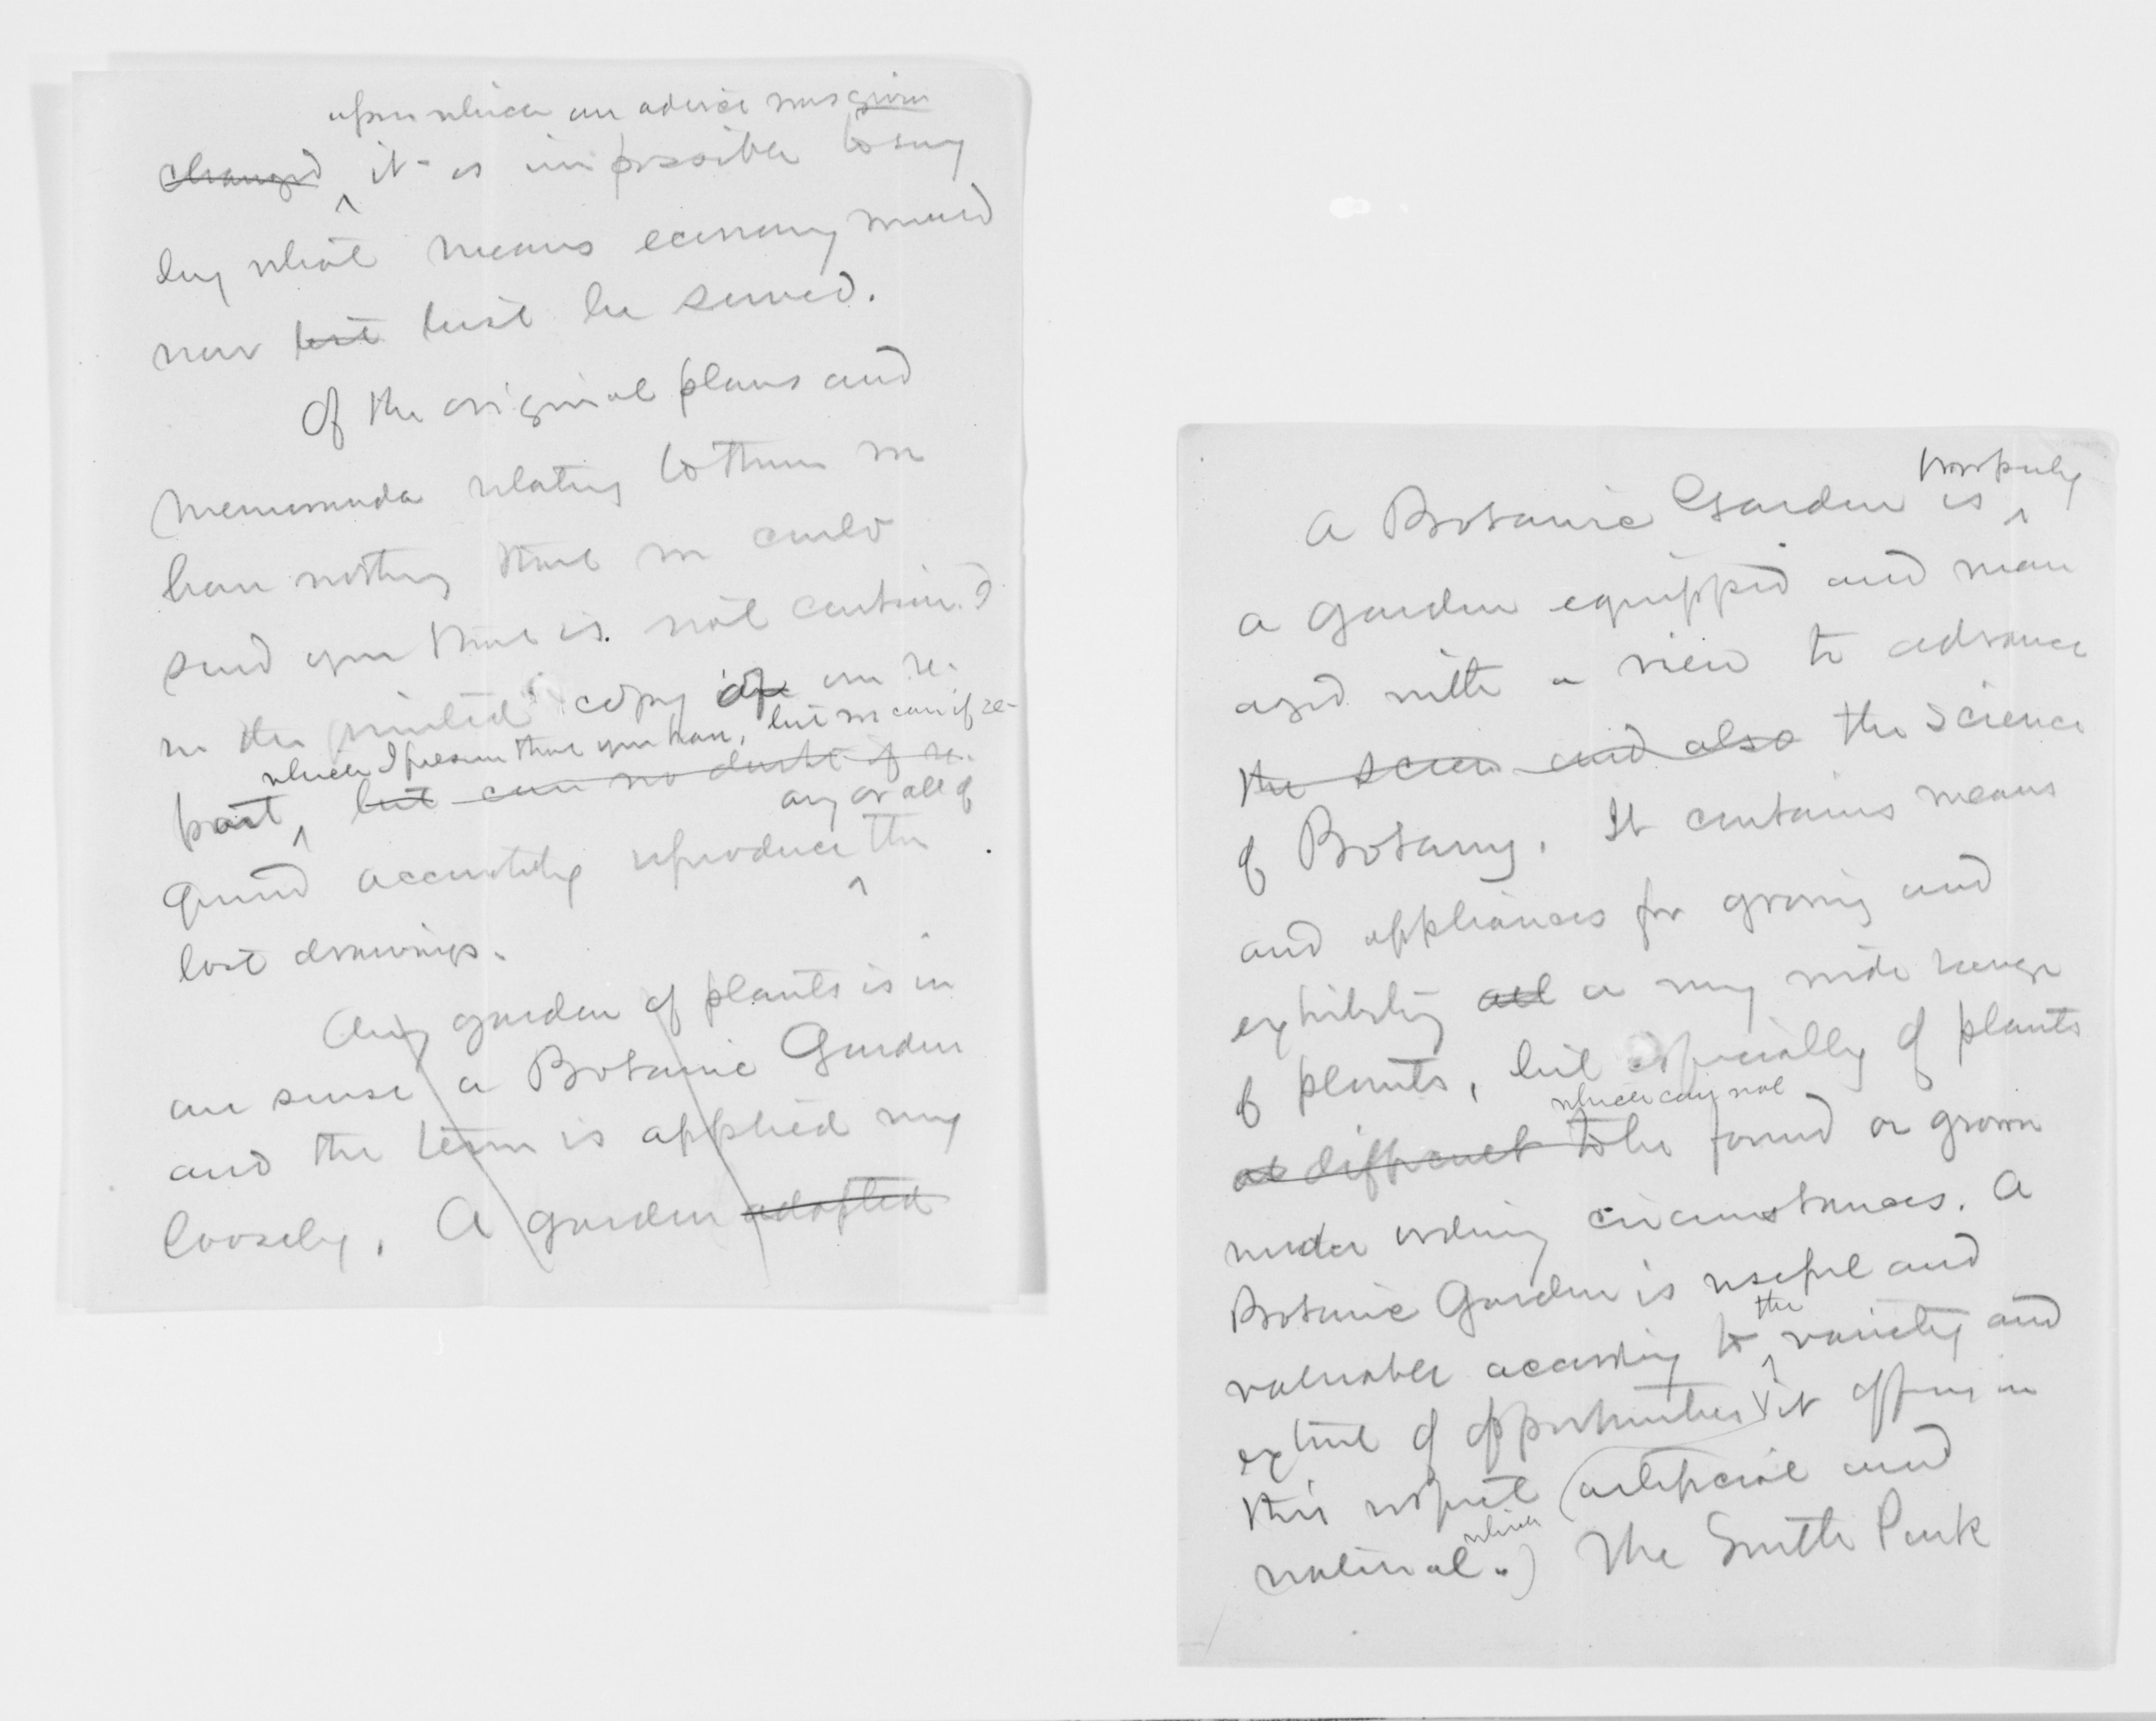 upon which our advice was given
changed it is impossible to say
by what means economy would
now best best be served.
Of the original plans and
memoranda relating to them we
have nothing that we could
send you that is not contain'd
in the printed copy of our re-
which I presume that you have, but we can if re-
port, but can no doubt if re-
any or all of
quired accurately reproduce the
lost drawings.
Any garden of plants is in
one sense a Botanic Garden
and the term is applied very
loosely. A garden adapted
properly
A Botanic Garden is
a garden equipped and man
aged with a view to advance
the scien and also the science
of Botany. It contains means
and appliances for growing and
exhibiting all a very wide range
of plants, but especially of plants
which can not
difficult to be found or grown
under ordinary circumstances. A
Botanic Garden is useful and
the
valuable according to variety and
extent of opportunities it offers in
this respect (artificial and
which
natural.) The South Park